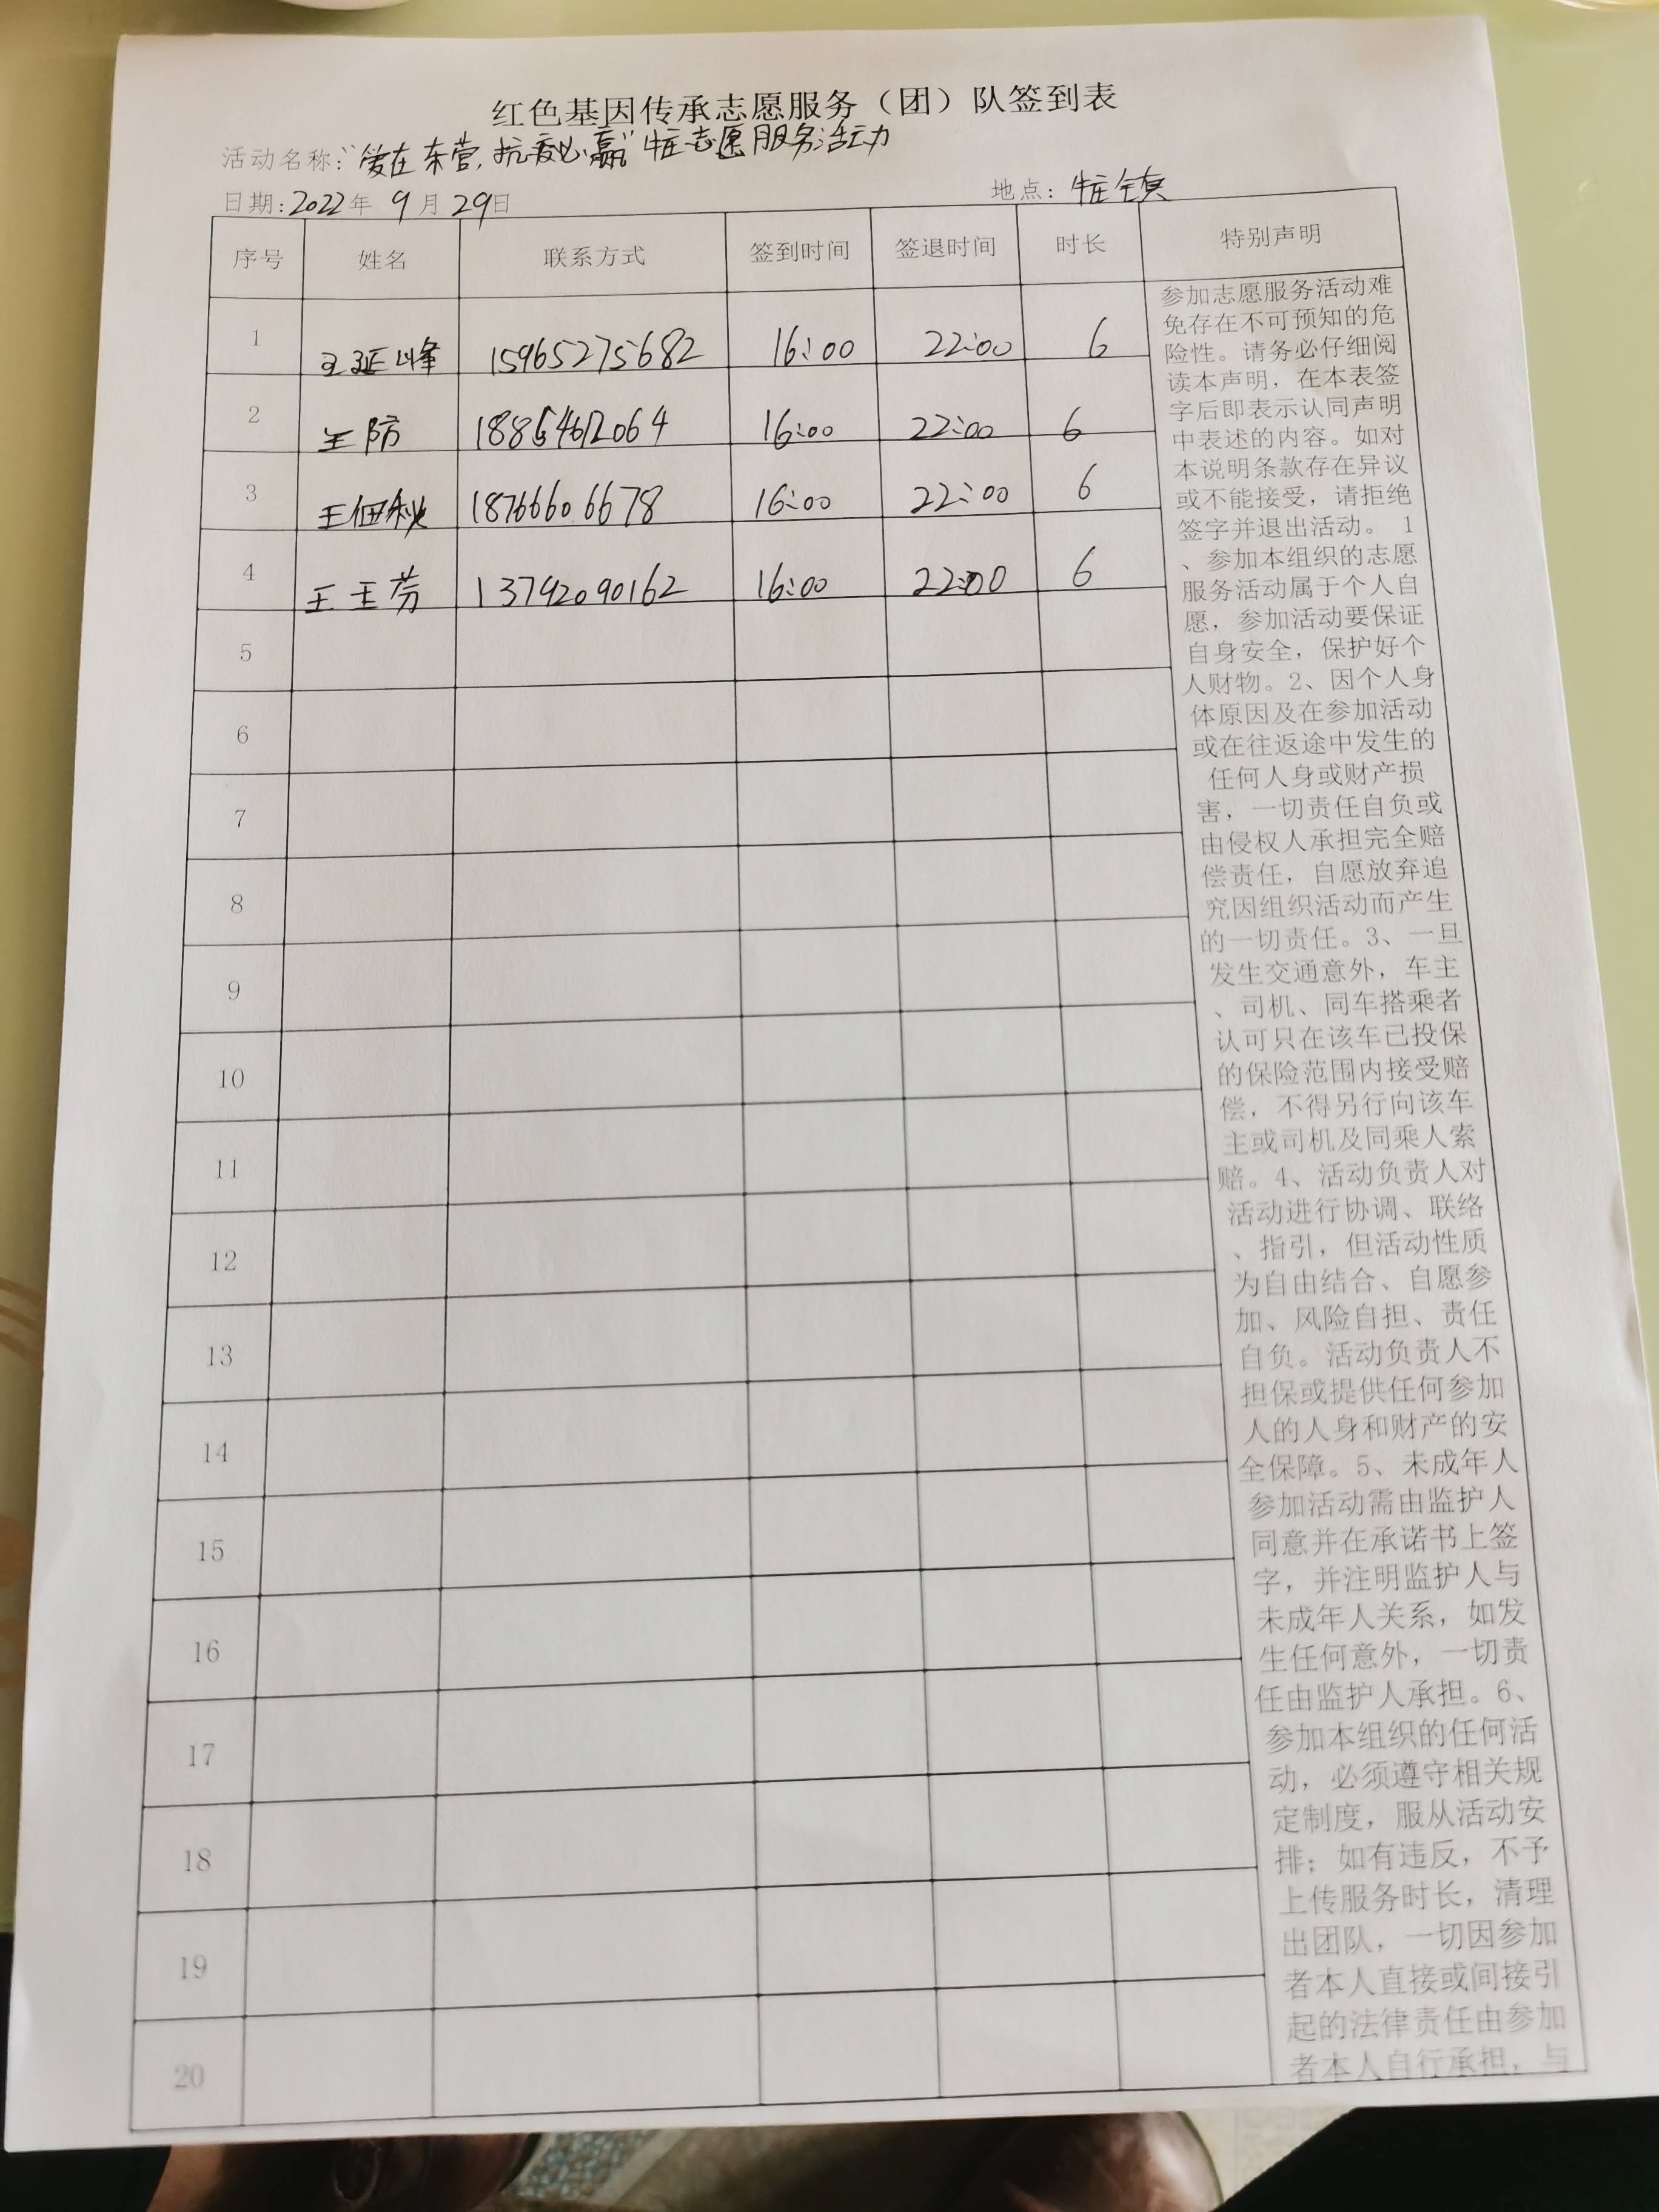 红色基因传承志愿服务（团）队签到表
活动名称：“爱在东营，抗疫必赢”牛庄志愿服务活动
日期：2022年 9月29日 地点：牛庄镇
序号 姓名 联系方式 签到时间 签退时间 时长 特别声明
1 王延峰 15965275682 16:00 22:00 6
2 王防 18865462064 16:00 22:00 6
3 王佃秋 18766606678 16:00 22:00 6
4 王玉芳 13792090162 16:00 22:00 6
5
6
7
8
9
10
11
12
13
14
15
16
17
18
19
20
参加志愿服务活动难
免存在不可预知的危
险性。请务必仔细阅
读本声明，在本表签
字后即表示认同声明
中表述的内容。如对
本说明条款存在异议
或不能接受，请拒绝
签字并退出活动。 1
、参加本组织的志愿
服务活动属于个人自
愿，参加活动要保证
自身安全，保护好个
人财物。2、因个人身
体原因及在参加活动
或在往返途中发生的
任何人身或财产损
害，一切责任自负或
由侵权人承担完全赔
偿责任，自愿放弃追
究因组织活动而产生
的一切责任。3、一旦
发生交通意外，车主
、司机、同车搭乘者
认可只在该车已投保
的保险范围内接受赔
偿，不得另行向该车
主或司机及同乘人索
赔。4、活动负责人对
活动进行协调、联络
、指引，但活动性质
为自由结合、自愿参
加、风险自担、责任
自负。活动负责人不
担保或提供任何参加
人的人身和财产的安
全保障。5、未成年人
参加活动需由监护人
同意并在承诺书上签
字，并注明监护人与
未成年人关系，如发
生任何意外，一切责
任由监护人承担。6、
参加本组织的任何活
动，必须遵守相关规
定制度，服从活动安
排；如有违反，不予
上传服务时长，清理
出团队，一切因参加
者本人直接或间接引
起的法律责任由参加
者本人自行承担，与